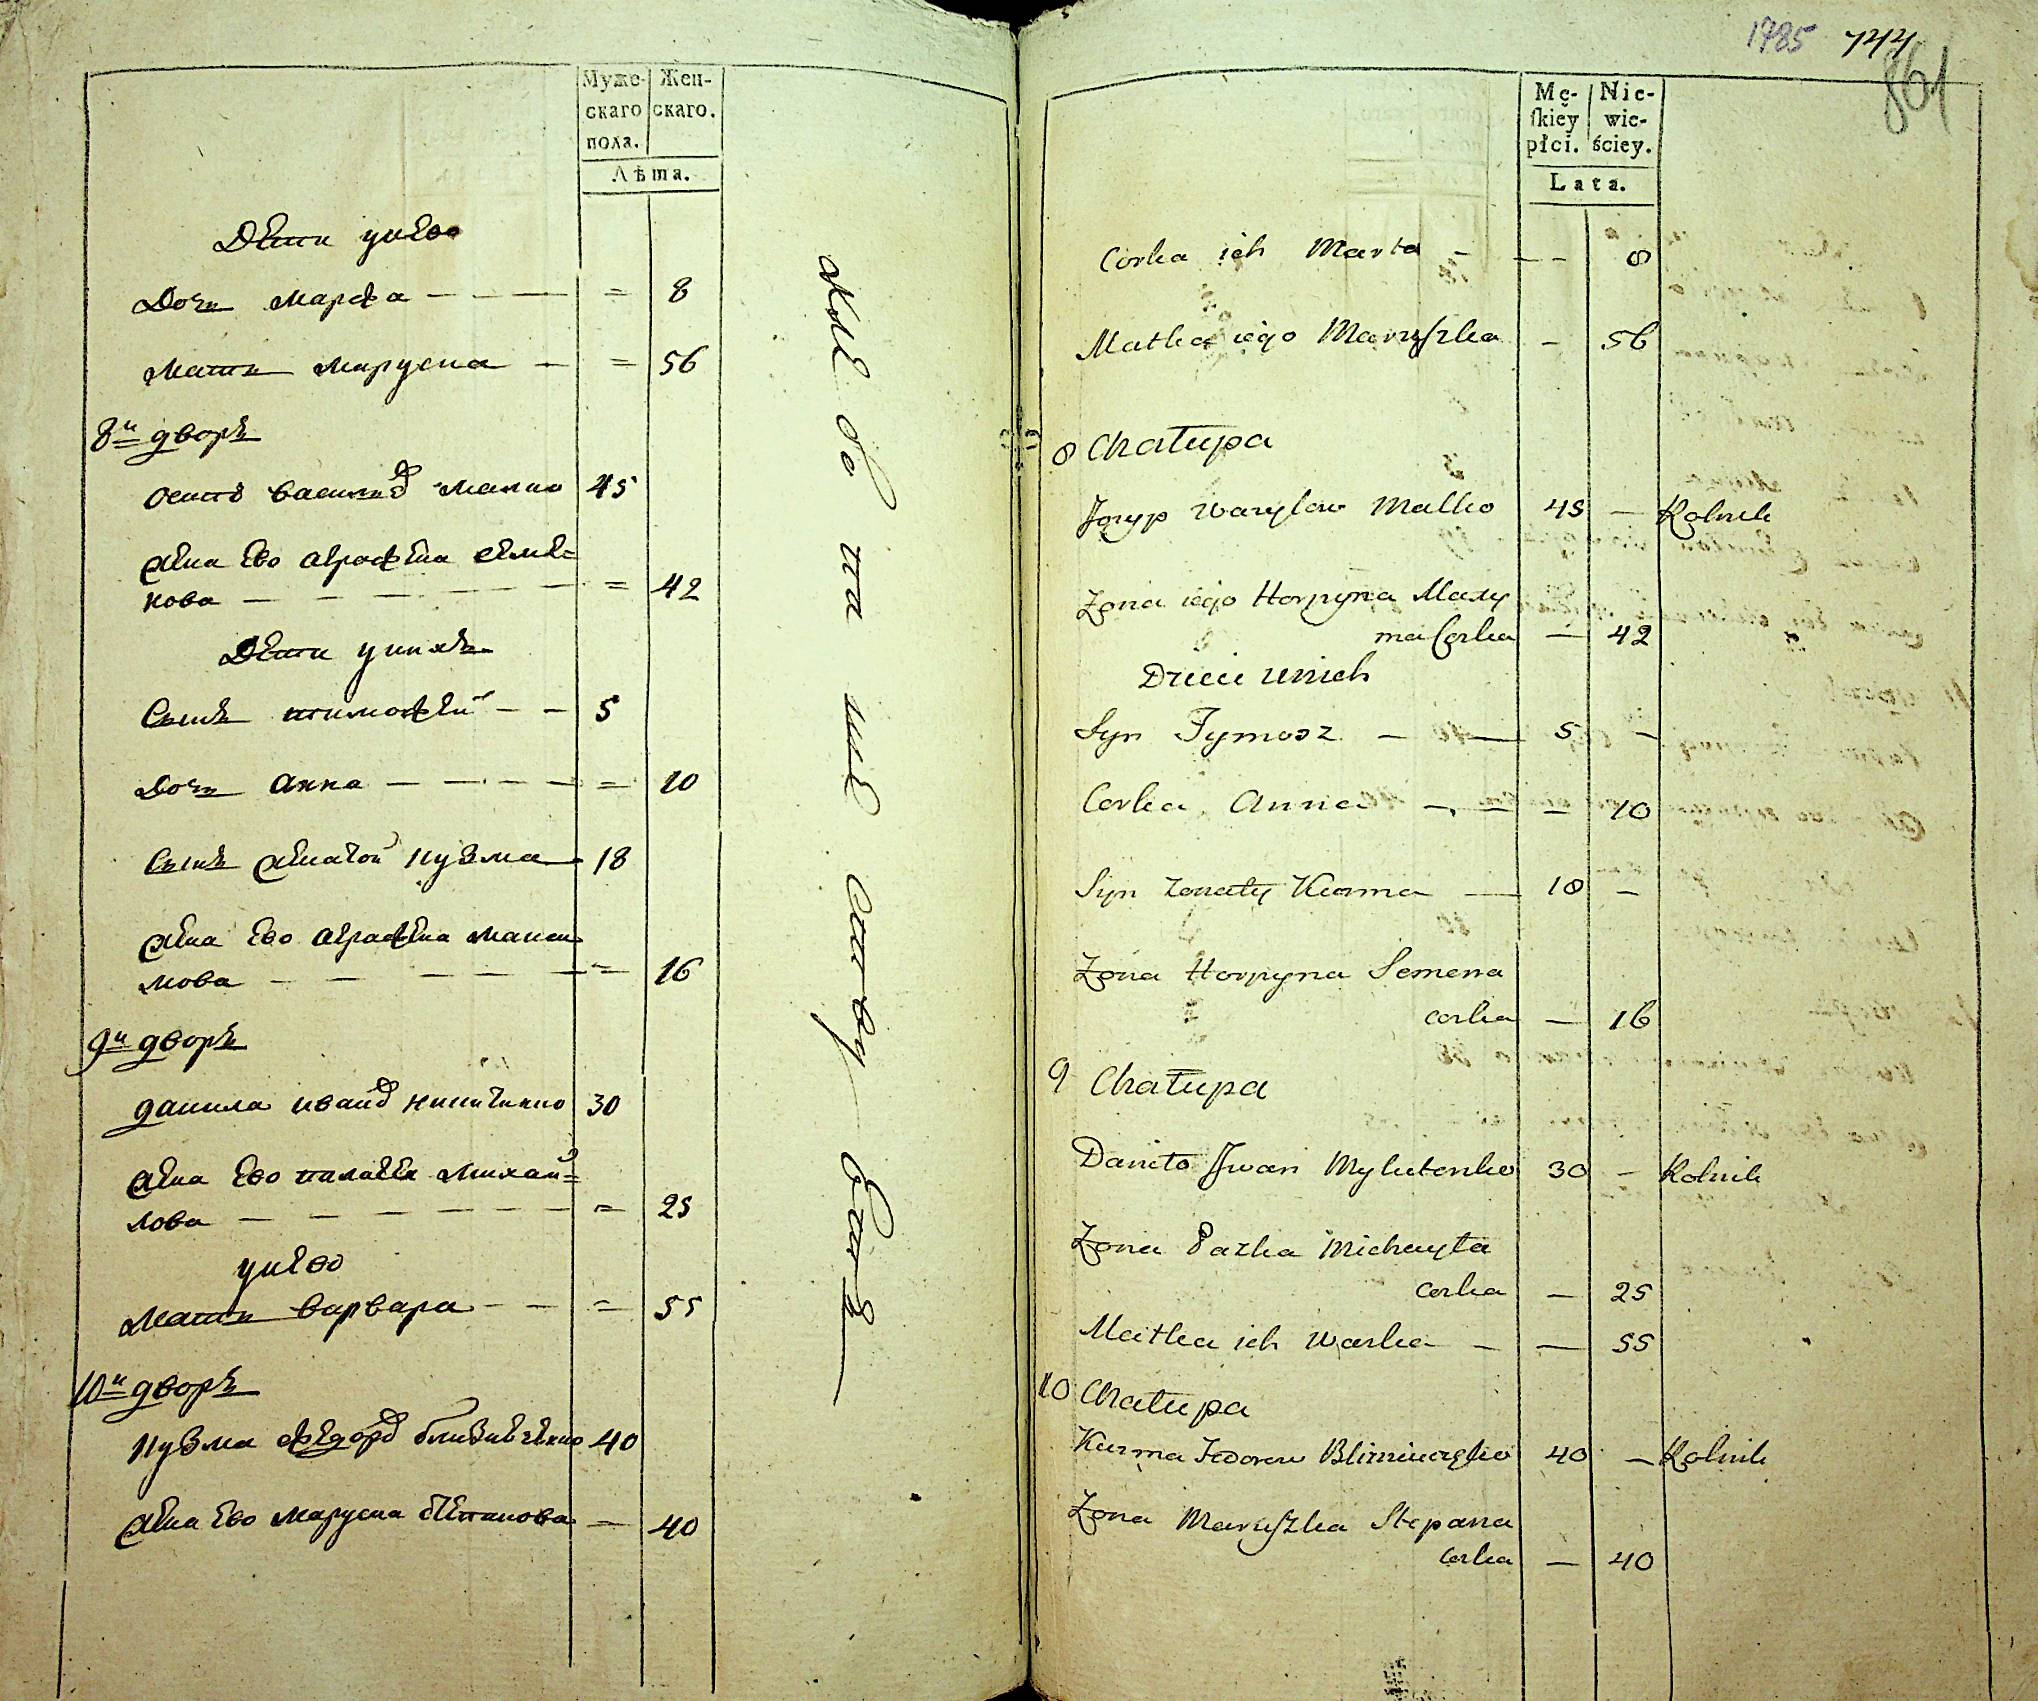 Муже-
скаго
пола.
Жен-
скаго.
Лѣта.
Дети унево
Дочь марфа — — — = 8
мать маруска — = 56
8й дворъ
осипъ василиевъ малко 45
жена ево аграфена семе=
нова — — — — = 42
Дети унихъ
Сынъ тимофей — — 5
Дочь анна — — — — = 10
Сынъ женатой кузма — 18
жена ево аграфена макси
мова — — — — = 16
9й дворъ
данила иванов никитенко 30
жена ево палажка михай=
лова — — — — — = 25
унево
мать варвара — — = 55
10й дворъ
кузма федоров 40
жена ево маруска степанова — 40
1785 744
861
Mę-
ſkiéy
płci.
Nie-
wie-
ściey.
Lata.
Corka ich Marta — — — 8
Matka iego Maruszka — 56
8 Chałupa
Jozyp Wasylow Malko 45 — Rolnik
Zona iego Horpyna Maxy
ma Corka — 42
Dzieci unich
Syn Tymosz — — 5 —
Corka Anna — — — 10
Syn zonaty Kuzma — 18 —
Zona Horpyna Semena
corka — 16
9 Chałupa
Daniło Jwan Mykitenko 30 — Rolnik
Zona Pazka Michayła
corka — 25
Matka ich Warka — — 55
10 Chałupa
Kuzma Fedorow 40 — Rolnik
Zona Maruszka Stepana
corka — 40